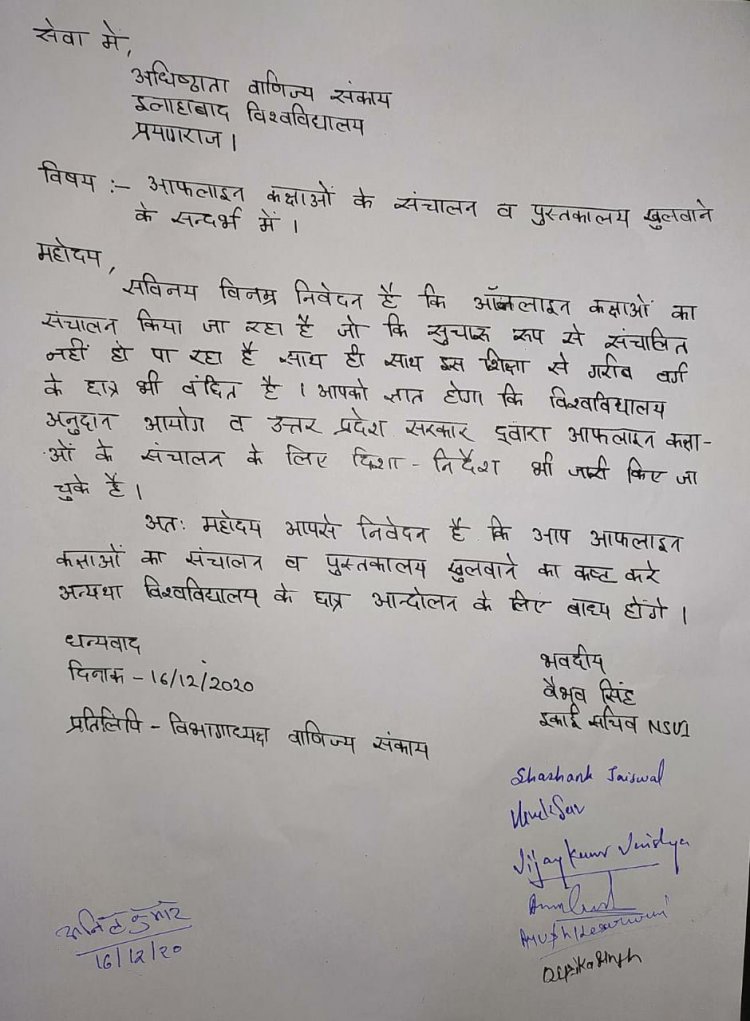 सेवा में,
अधिष्ठाता वाणिज्य संकाय
इलाहाबाद विश्वविद्यालय
प्रयागराज।
विषय :- आफलाइन कक्षाओं के संचालन व पुस्तकालय खुलवाने
के सन्दर्भ में।
महोदय,
सविनय विनम्र निवेदन है कि ऑनलाइन कक्षाओं का
संचालन किया जा रहा है जो कि सुचारू रूप से संचालित
नहीं हो पा रहा है साथ ही साथ इस शिक्षा से गरीब वर्ग
के छात्र भी वंचित है। आपको ज्ञात होगा कि विश्वविद्यालय
अनुदान आयोग व उत्तर प्रदेश सरकार द्वारा आफलाइन कक्षा-
ओं के संचालन के लिए दिशा-निर्देश भी जारी किए जा
चुके है।
अतः महोदय आपसे निवेदन है कि आप आफलाइन
कक्षाओं का संचालन व पुस्तकालय खुलवाने का कष्ट करे
अन्यथा विश्वविद्यालय के छात्र आन्दोलन के लिए बाध्य होंगे।
धन्यवाद
दिनाक - 16/12/2020
प्रतिलिपि - विभागाध्यक्ष वाणिज्य संकाय
भवदीय
वैभव सिंह
इकाई सचिव NSUI
Shashank Jaiswal
Vijay Kumar
Deepika Singh
अनिल कुमार
16/12/20